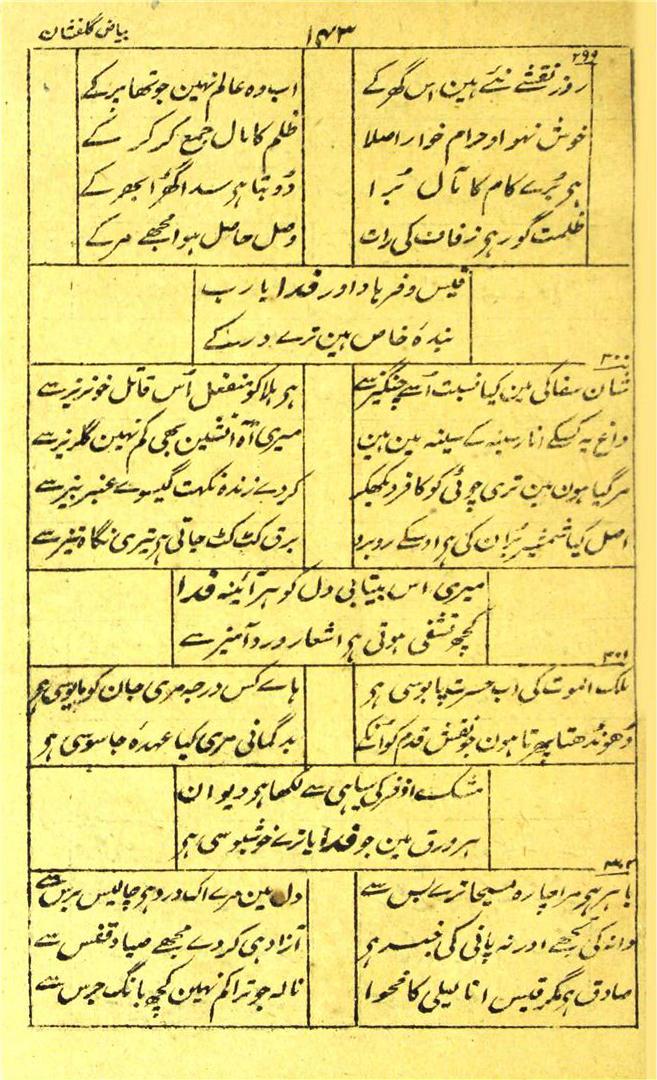 ۱۴۳ بیاض گلفشان
۲۹۹
روز نقشے نئے ہین اس گھر کے اب وہ عالم نہین جو تھا بر کے
خوش نہو او حرام خوار اصلا ظلم کا مال جمع کر کر کے
ہی بُرے کام کا مآل بُرا ڈوبتا ہی سدا گھڑا بھر کے
ظلمت گور ہی زفاف کی رات وصل حاصل ہوا مجھے مر کے
قیس و فرہاد اور فدا یارب
بندۂ خاص ہین ترے در کے
۳۰۰
شان سفاکی مین کیا نسبت اُسے چنگیز سے ہی ہلاکو منفعل اُس قاتل خونریز سے
داغ یہ کسکے انار سینہ کے سینہ مین ہین میری آہ آتشین بھی کم نہین گلریز سے
مر گیا ہون مین تری چوٹی کو کافر دیکھکر کر دے زندہ نکہت گیسوے عنبر بیز سے
اصل کیا شمشیر بُران کی ہی اوسکے روبرو برق کٹ کٹ جاتی ہی تیری نگاہ تیز سے
میری اس بیتابی دل کو ہر آئینہ فدا
کچھ تشفی ہوتی ہی اشعار درد آمیز سے
۳۰۱
ملک الموت کی اب حسرت پابوسی ہی ہاے کس درجہ مری جان کو مایوسی ہی
ڈھونڈھتا پھرتا ہون جو نقش قدم کو اُنکے بدگمانی مری کیا عہدۂ جاسوسی ہی
مشک اذفر کی سیاہی سے لکھا ہی دیوان
ہر ورق مین جو فدا یا رے خوشبوسی ہی
۳۰۲
باہر ہی مرا چارہ مسیحا ترے بس سے دل مین مرے اک درد ہی چالیس برس سے
دانہ کی تجھے اور نہ پانی کی خبر ہی آزاد ہی کر دے مجھے صیاد قفس سے
صادق ہی مگر قیس انا لیلی کا محوا نالہ جو ترا کم نہین کچھ بانگ جرس سے